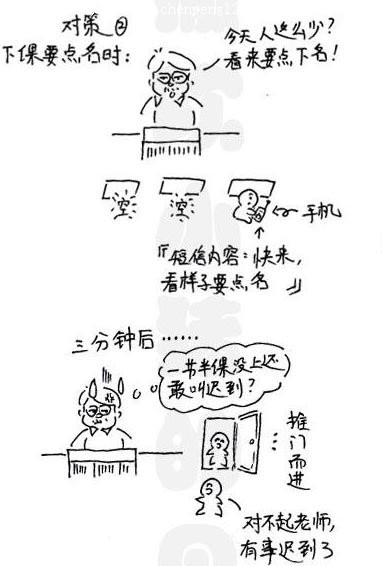 对策②
下课要点名时:
今天人这么少?
看来要点下名!
空
空
手机
『短信内容:快来,
看样子要点名 』
三分钟后……
一节半课没上还
敢叫迟到?
推门而进
对不起老师,
有事迟到了